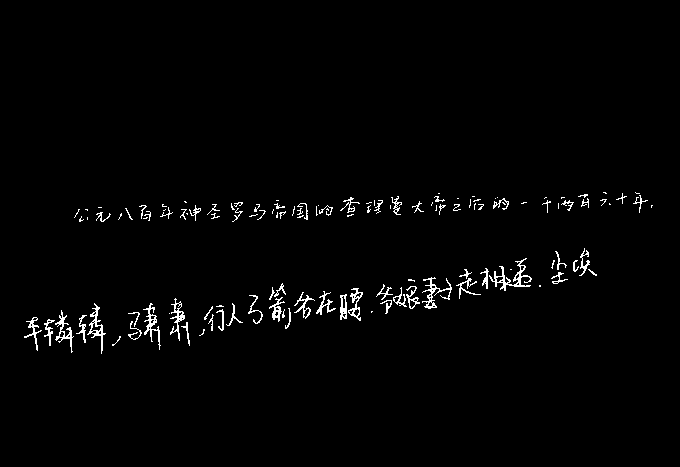 公元八百年神圣罗马帝国的查理曼大帝之后的一千两百六十年.
车辚辚,马萧萧,行人弓箭各在腰.爷娘妻子走相送.尘埃